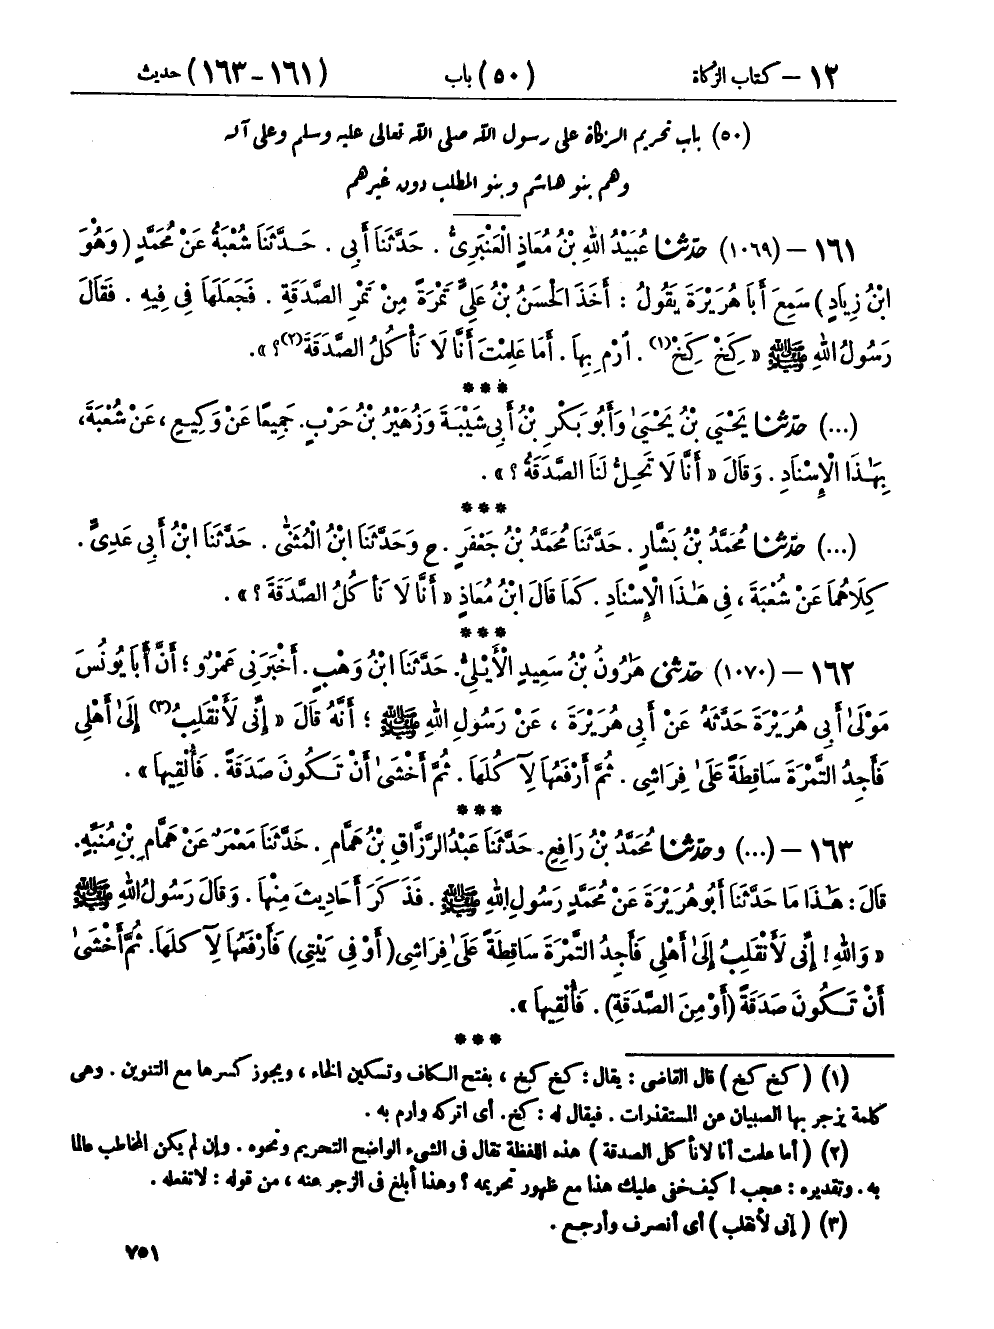 ١٢ – كتاب الزكاة (٥٠) باب (١٦١–١٦٣) حديث
(٥٠) باب تحريم الزكاة على رسول الله صلى الله تعالى عليه وسلم وعلى آله
وهم بنو هاشم وبنو المطلب دون غيرهم
١٦١ – (١٠٦٩) حدّثنا عُبَيْدُ اللهِ بْنُ مُعَاذٍ الْعَنْبَرِىُّ . حَدَّثَنَا أَبِى . حَدَّثَنَا شُعْبَةُ عَنْ مُحَمَّدٍ (وَهُوَ
ابْنُ زِيَادٍ) سَمِعَ أَبَا هُرَيْرَةَ يَقُولُ : أَخَذَ الْحَسَنُ بْنُ عَلِىٍّ تَمْرَةً مِنْ تَمْرِ الصَّدَقَةِ . فَجَعَلَهَا فِى فِيهِ . فَقَالَ
رَسُولُ اللهِ ﷺ « كِخْ كِخْ(١) . ارْمِ بِهَا . أَمَا عَلِمْتَ أَنَّا لَا نَأْكُلُ الصَّدَقَةَ(٢)؟ » .
***
(...) حدّثنا يَحْيَى بْنُ يَحْيَىٰ وَأَبُو بَكْرِ بْنُ أَبِى شَيْبَةَ وَزُهَيْرُ بْنُ حَرْبٍ. جَمِيعًا عَنْ وَكِيعٍ ، عَنْ شُعْبَةَ،
بِهَـٰذَا الْإِسْنَادِ . وَقَالَ « أَنَّا لَا تَحِلُّ لَنَا الصَّدَقَةُ ؟ » .
***
(...) حدّثنا مُحَمَّدُ بْنُ بَشَّارٍ . حَدَّثَنَا مُحَمَّدُ بْنُ جَعْفَرٍ . ح وَحَدَّثَنَا ابْنُ الْمُثَنَّىٰ . حَدَّثَنَا ابْنُ أَبِى عَدِىٍّ .
كِلَاهُمَا عَنْ شُعْبَةَ ، فِى هَـٰذَا الْإِسْنَادِ . كَمَا قَالَ ابْنُ مُعَاذٍ « أَنَّا لَا نَأْكُلُ الصَّدَقَةَ ؟ » .
***
١٦٢ – (١٠٧٠) حدّثنى هَارُونُ بْنُ سَعِيدٍ الْأَيْلِىُّ. حَدَّثَنَا ابْنُ وَهْبٍ . أَخْبَرَنِى عَمْرٌو ؛ أَنَّ أَبَا يُونُسَ
مَوْلَىٰ أَبِى هُرَيْرَةَ حَدَّثَهُ عَنْ أَبِى هُرَيْرَةَ ، عَنْ رَسُولِ اللهِ ﷺ ؛ أَنَّهُ قَالَ « إِنِّى لَأَنْقَلِبُ(٣) إِلَىٰ أَهْلِى
فَأَجِدُ التَّمْرَةَ سَاقِطَةً عَلَىٰ فِرَاشِى . ثُمَّ أَرْفَعُهَا لِآكُلَهَا . ثُمَّ أَخْشَىٰ أَنْ تَكُونَ صَدَقَةً . فَأُلْقِيهَا » .
***
١٦٣ – (...) وحدّثنا مُحَمَّدُ بْنُ رَافِعٍ. حَدَّثَنَا عَبْدُ الرَّزَّاقِ بْنُ هَمَّامٍ . حَدَّثَنَا مَعْمَرٌ عَنْ هَمَّامِ بْنِ مُنَبِّهٍ.
قَالَ : هَـٰذَا مَا حَدَّثَنَا أَبُو هُرَيْرَةَ عَنْ مُحَمَّدٍ رَسُولِ اللهِ ﷺ . فَذَكَرَ أَحَادِيثَ مِنْهَا . وَقَالَ رَسُولُ اللهِ ﷺ
« وَاللهِ! إِنِّى لَأَنْقَلِبُ إِلَىٰ أَهْلِى فَأَجِدُ التَّمْرَةَ سَاقِطَةً عَلَىٰ فِرَاشِى (أَوْ فِى بَيْتِى) فَأَرْفَعُهَا لِآكُلَهَا. ثُمَّ أَخْشَىٰ
أَنْ تَكُونَ صَدَقَةً (أَوْ مِنَ الصَّدَقَةِ) . فَأُلْقِيهَا ».
***
(١) (كخ كخ) قال القاضى : يقال : كخ كخ ، بفتح الكاف وتسكين الخاء ، ويجوز كسرها مع التنوين . وهى
كلمة يزجر بها الصبيان عن المستقذرات . فيقال له : كخ. أى اتركه وارم به .
(٢) ( أما علمت أنا لا نأكل الصدقة ) هذه اللفظة تقال فى الشىء الواضح التحريم ونحوه . وإن لم يكن المخاطب عالما
به . وتقديره : عجب ! كيف خفى عليك هذا مع ظهور تحريمه ؟ وهذا أبلغ فى الزجر عنه ، من قوله : لا تفعله .
(٣) ( إنى لأنقلب ) أى أنصرف وأرجع .
٧٥١